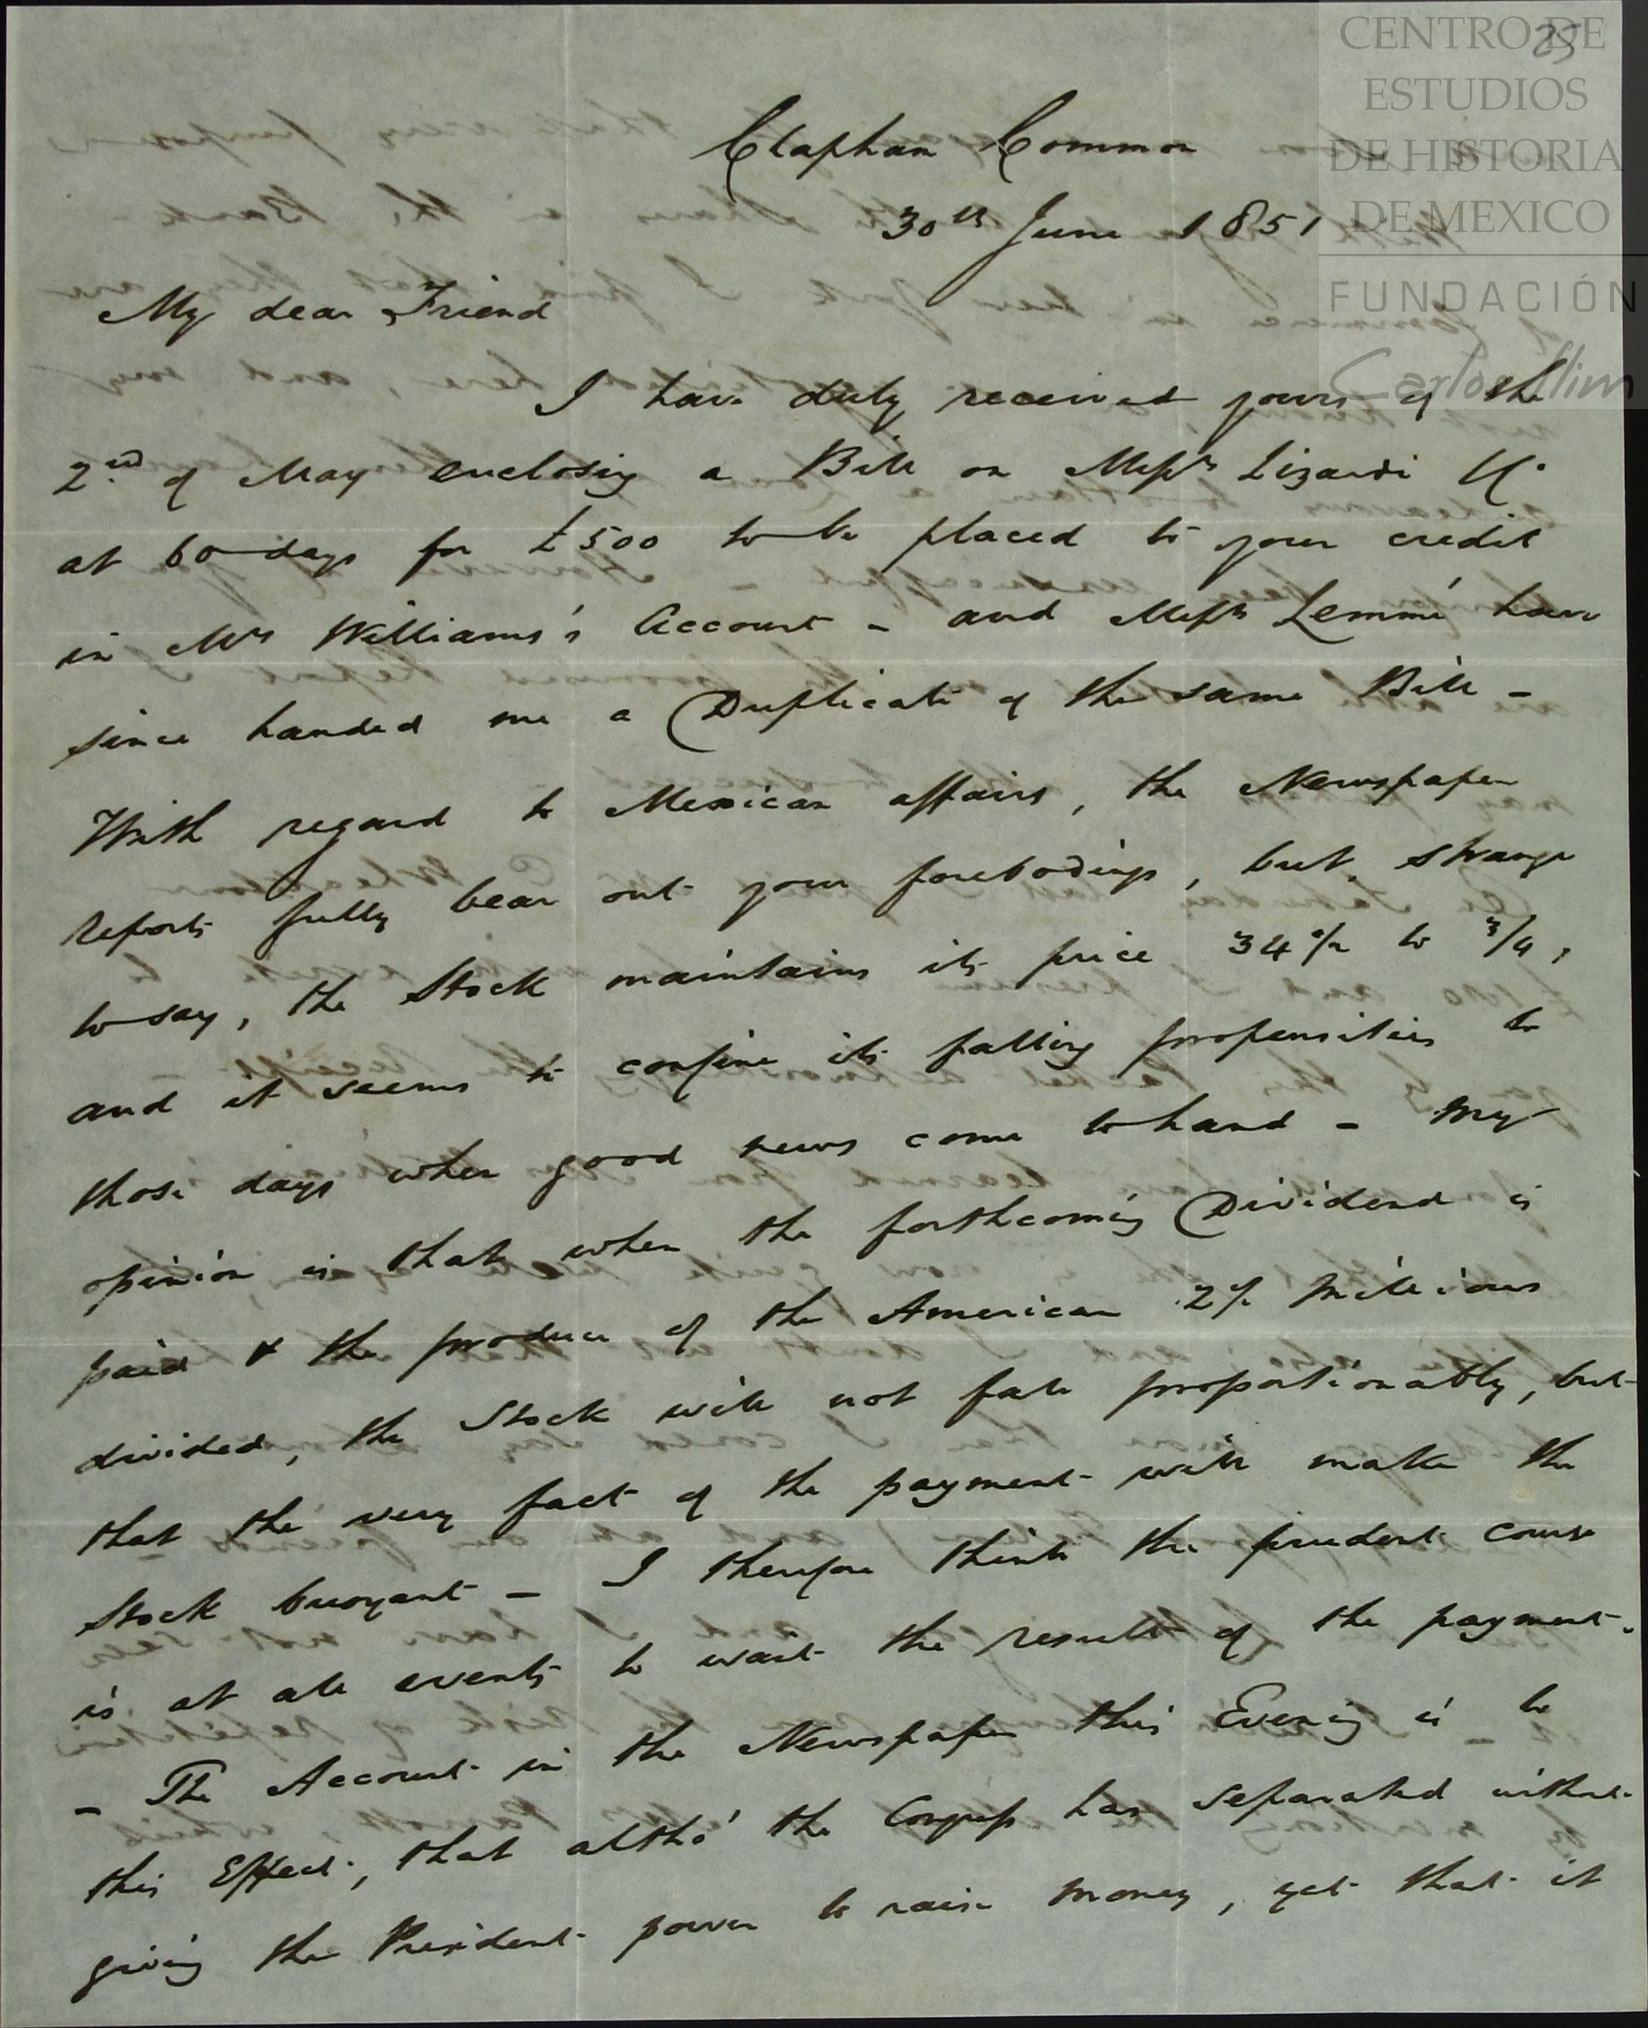 25
CENTRO DE
ESTUDIOS
DE HISTORIA
DE MEXICO
FUNDACIÓN
Carlos Slim
Clapham Common
30th June 1851
My dear Friend
I have duly received yours of the
2nd of May enclosing a Bill on Messrs Lizardi &Co
at 60 days for £500 to be placed to your credit
in Mrs Williams's Account - and Messrs Lemmé have
since handed me a Duplicate of the same Bill -
With regard to Mexican affairs, the Newspaper
reports fully bear out your forebodings, but, strange
to say, the Stock maintains its price 34 1/2 to 3/4,
and it seems to confine its falling propensities to
those days when good news come to hand - My
opinion is that when the forthcoming Dividend is
paid & the produce of the American 2 1/2 Millions
divided, the Stock will not fall proportionably, but
that the very fact of the payment will make the
Stock buoyant - I therefore think the prudent course
is at all events to wait the result of the payment.
- The Account in the Newspaper this Evening is to
this Effect, that altho' the Congress has separated without
giving the President power to raise money, yet that it